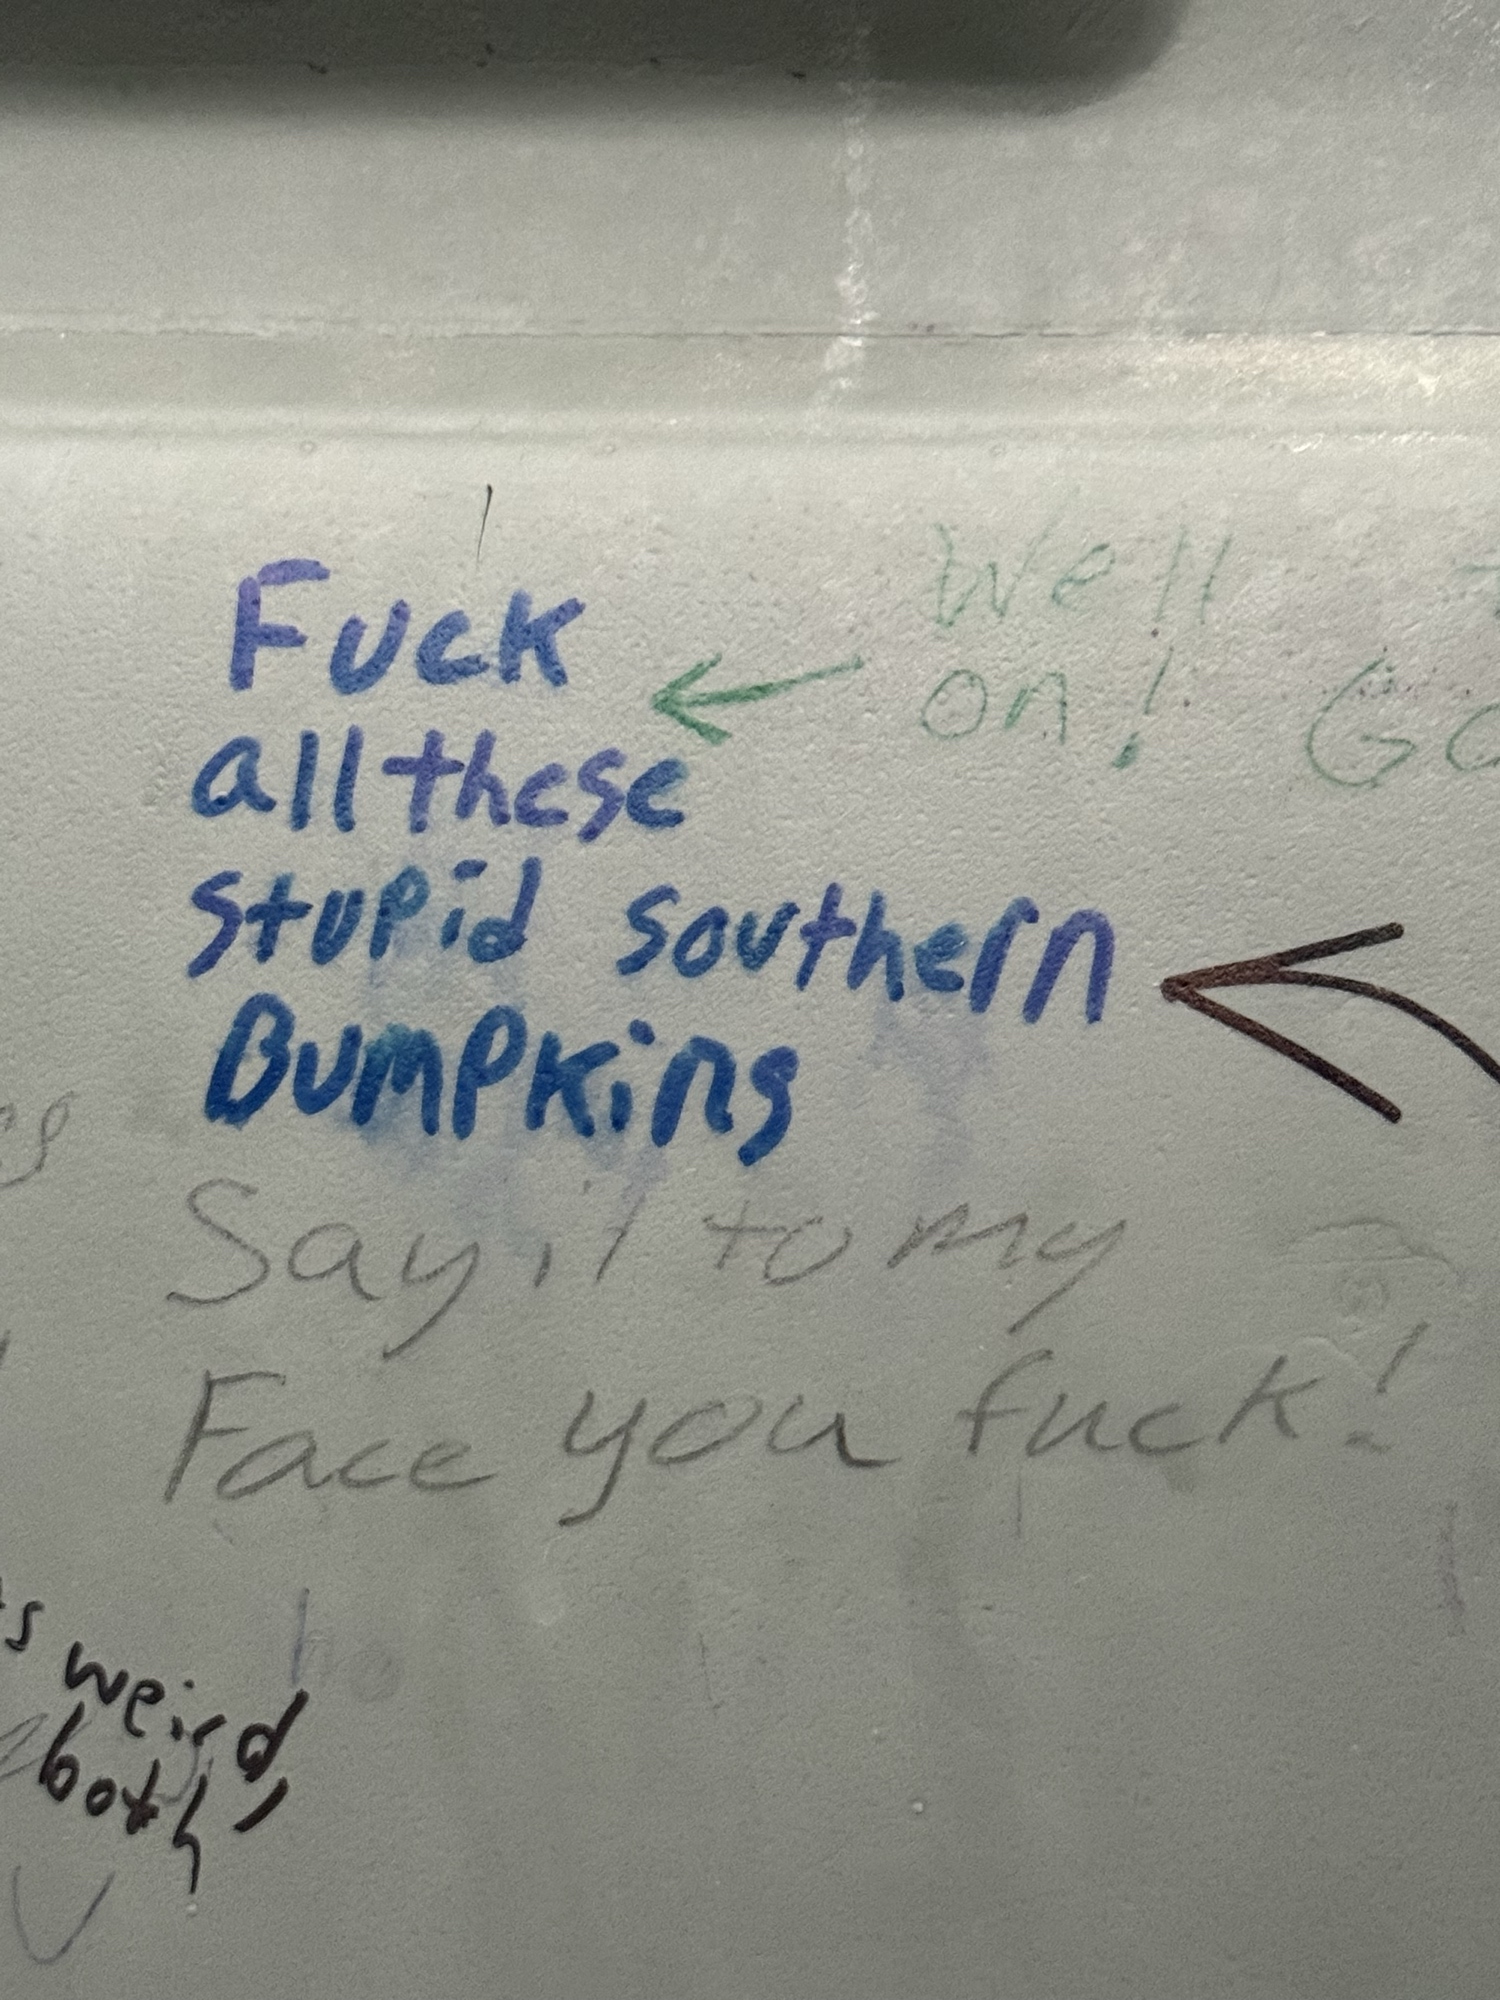 Fuck
all these
stupid southern
Bumpkins
Well
on!
Say it to my
Face you fuck!
weird